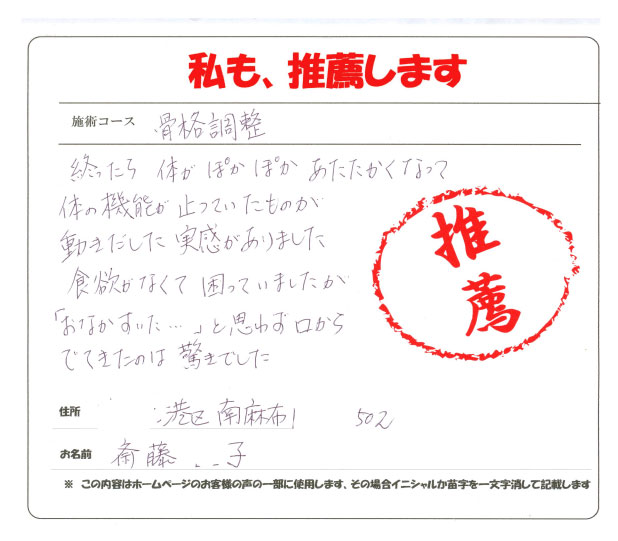 私も、推薦します
施術コース 骨格調整
終ったら 体が ぽかぽか あたたかくなって
体の機能が止っていたものが
動きだした実感がありました
食欲がなくて 困っていましたが
「おなかすいた…」と思わず口から
でてきたのは 驚きでした
推薦
住所 港区南麻布 502
お名前 斎藤 子
※ この内容はホームページのお客様の声の一部に使用します、その場合イニシャルか苗字を一文字消して記載します